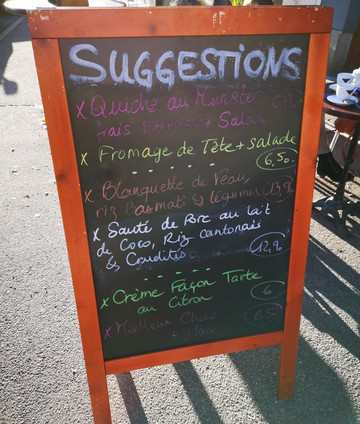 SUGGESTIONS
x Quiche au Munster
frais + Salade
x Fromage de Tête + salade
6,50.
x Blanquette de Veau,
riz Basmati & légumes 13,90
x Sauté de Porc au lait
de Coco, Riz cantonais
& Crudités 12,90
x Crème Façon Tarte
au Citron 6
x Moelleux Choco 6,50